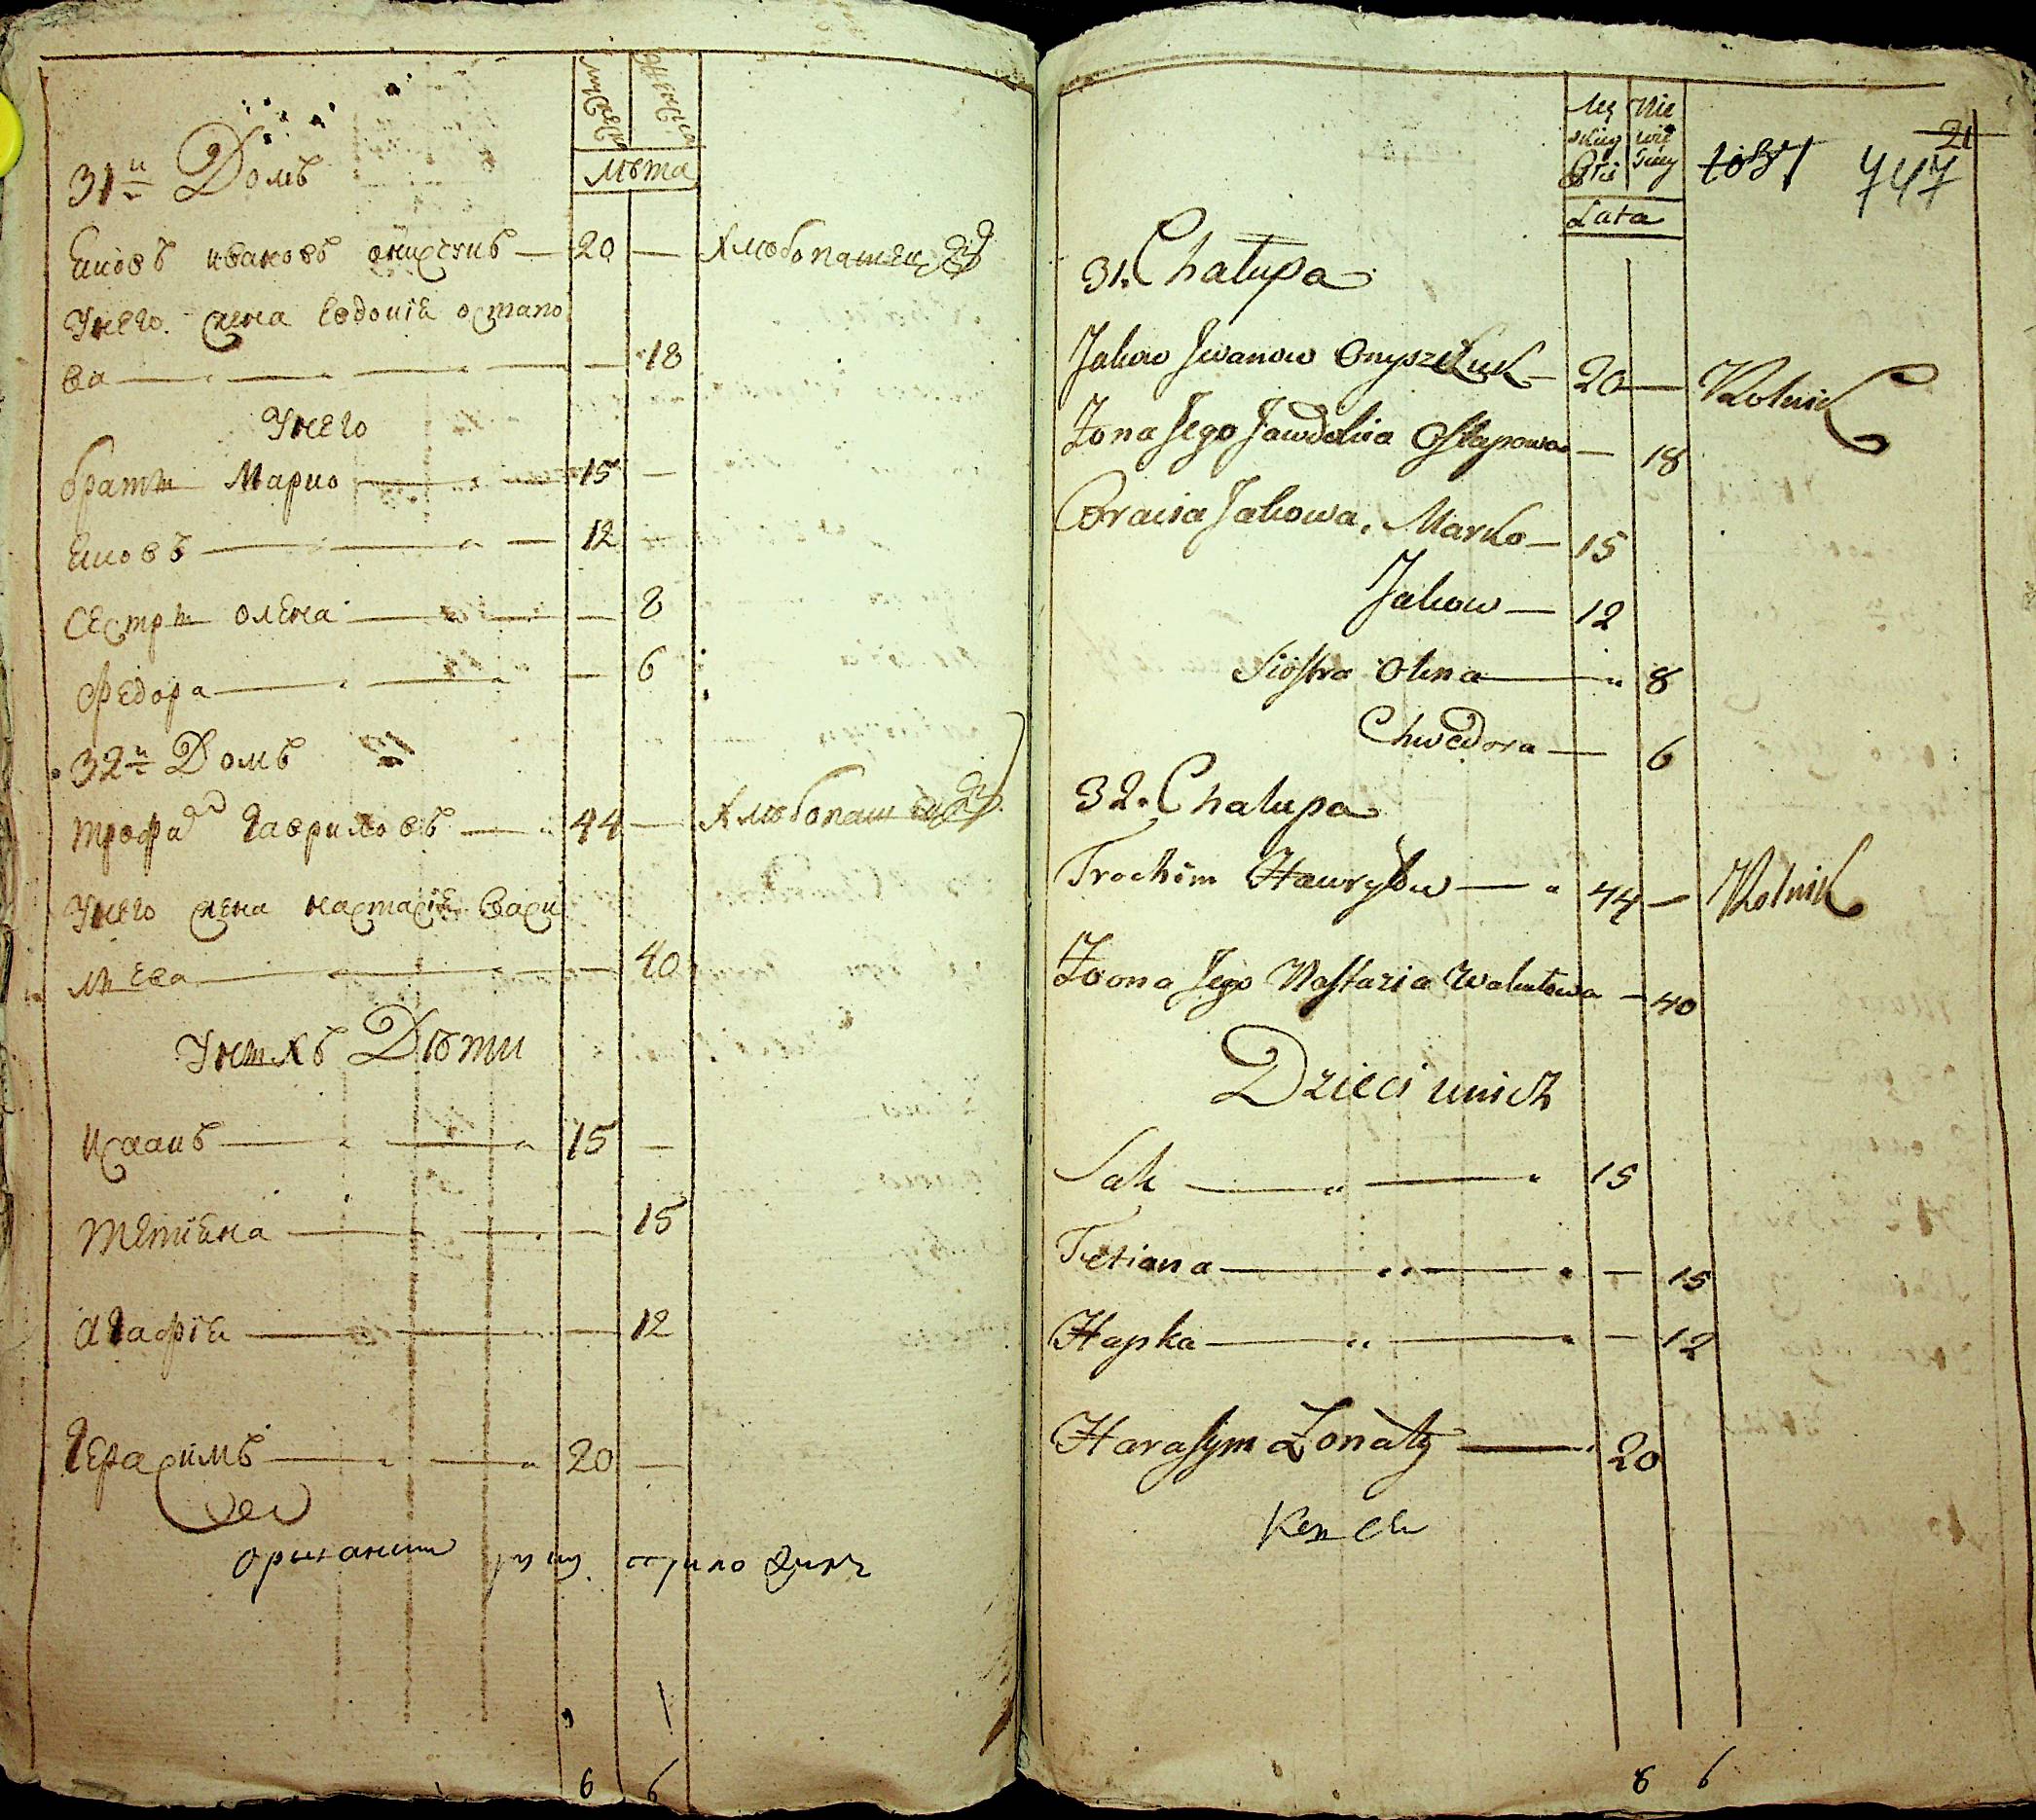 мужеска
женска
Лѣта
31й Домъ
Яковъ ивановъ онищукъ — 20 — Хлѣбопашецъ
Унего жена Евдокiя остапо
ва — 18
Унего
братъя Марко — 15 —
Яковъ — 12
сестрѣ олена — 8
Федора — 6
32й Домъ
трофим Гавриловъ — 44 — Хлѣбопашецъ
Унего жена настасiя Васи
лѣева — 40
Унихъ Дѣти
Исаакъ — 15 —
Тетiяна — 15
Агафiя — 12
Герасимъ — 20 —
6 6
21
Męskiey Płci
Niewieściey
1031 747
Lata
31. Chałupa
Jakow Jwanow Onyszczuk — 20 — Rolnik
Żona Jego Jawdokia Ostapowa — 18
Bracia Jakowa, Marko — 15
Jakow — 12
Siostra Olena — 8
Chwedora — 6
32. Chalupa
Trochim Hawryłow — 44 — Rolnik
Żona Jego Nastazia — 40
Dzieci unich
Sak — 15
Tetiana — 15
Hapka — 12
Harasym Żonaty — 20
8 6